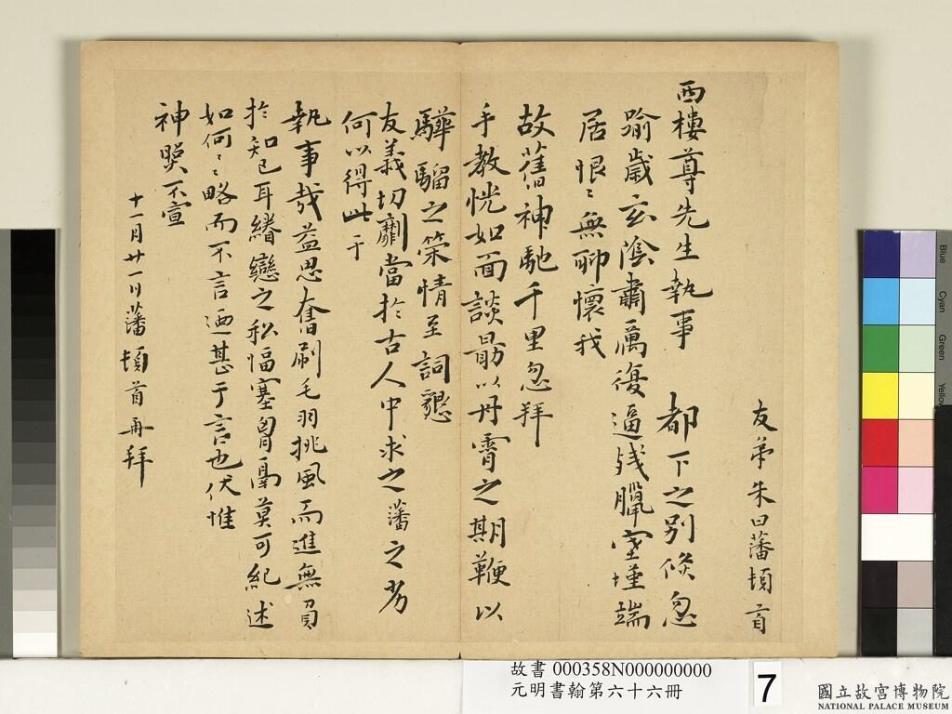 友弟朱曰藩頓首
西樓尊先生執事　都下之別倏忽
踰歲玄陰肅厲復逼殘臘室堇端
居恨〻無聊懷我
故舊神馳千里忽拜
手教恍如面談勗以丹霄之期鞭以
驊騮之策情至詞懇
友義切劘當於古人中求之藩之劣
何以得此于
執事哉益思奮刷毛羽挑風而進無負
於知己耳繾戀之私愊塞胷鬲莫可紀述
如何〻略而不言迺甚于言也伏惟
神照不宣
十一月廿一日藩頓首再拜
故書 000358N000000000
元明書翰第六十六冊
7
國立故宮博物院
NATIONAL PALACE MUSEUM
Blue
Cyan
Green
Yellow